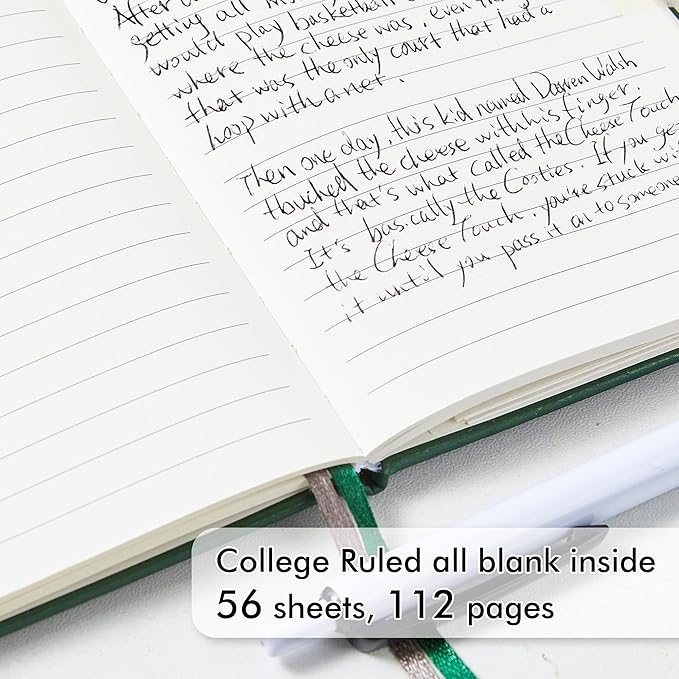 After
getting all
would play basketball
where the cheese was, even
that was the only court that had a
hoop with a net.
Then one day, this kid named Darren Walsh
touched the cheese with his finger.
and that's what called the Cheese Touch
It's basically the Cooties. If you ge
the Cheese Touch, you're stuck wi
it until you pass it on to someone
College Ruled all blank inside
56 sheets, 112 pages